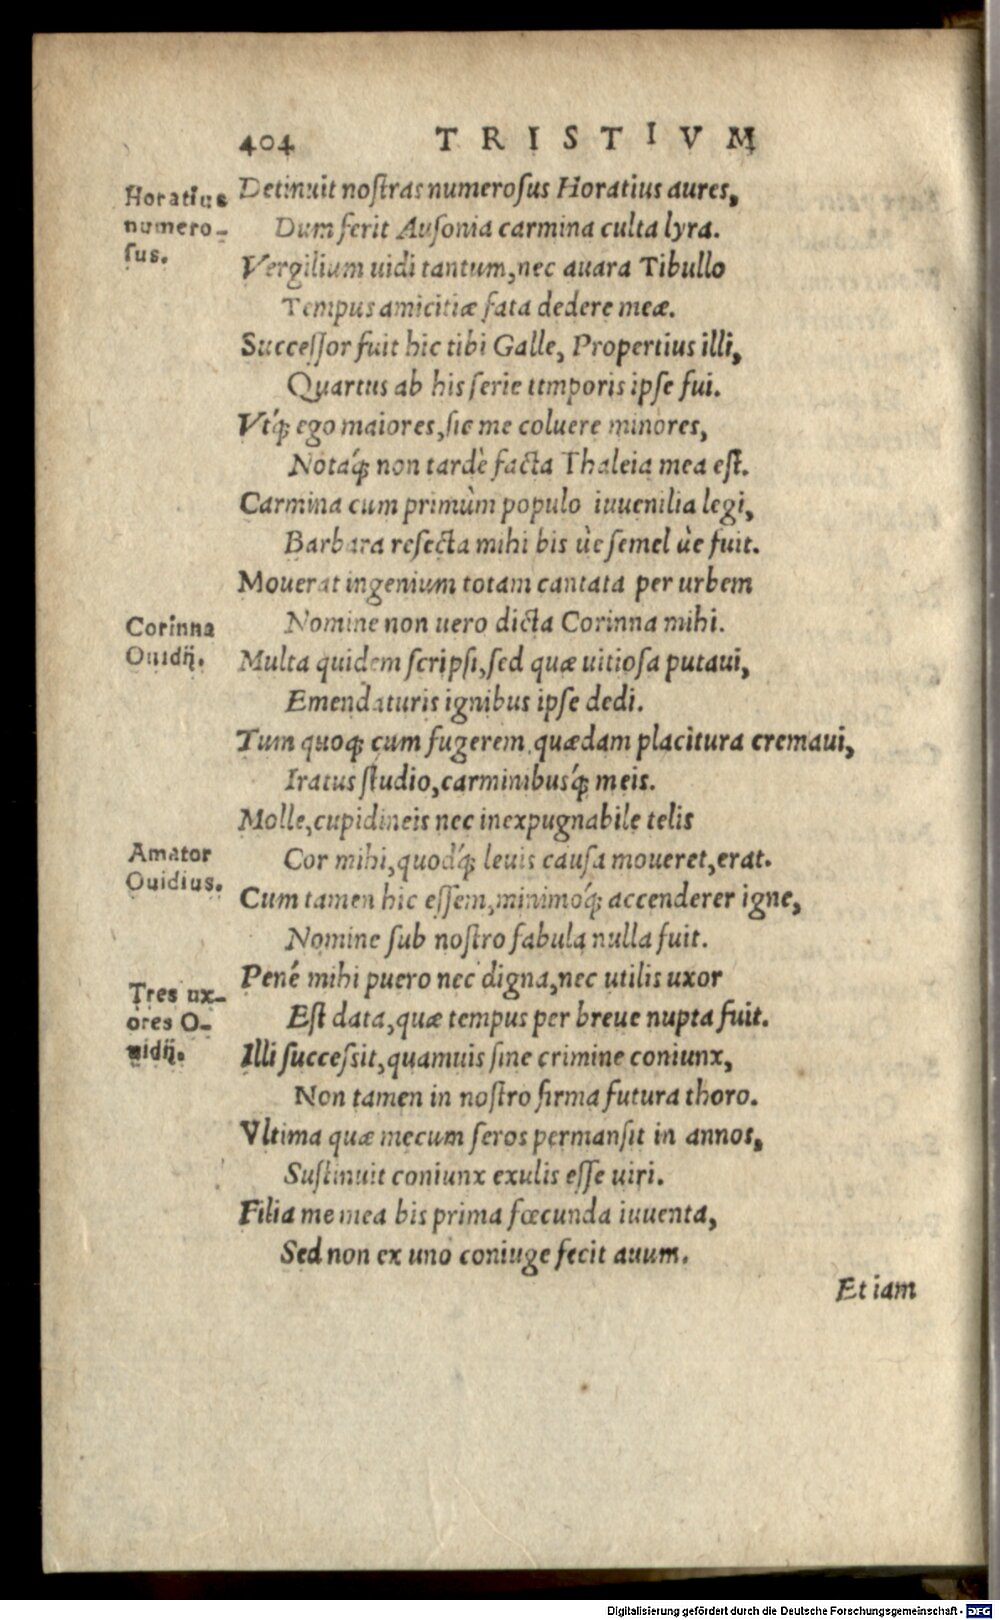 404 TRISTIVM
Horatius
numero-
sus.
Detinuit nostras numerosus Horatius aures,
Dum ferit Ausonia carmina culta lyra.
Vergilium uidi tantum, nec auara Tibullo
Tempus amicitiæ fata dedere meæ.
Successor fuit hic tibi Galle, Propertius illi,
Quartus ab his serie ttmporis ipse fui.
Vtq́; ego maiores, sic me coluere minores,
Notaq́; non tardè facta Thaleia mea est.
Carmina cum primùm populo iuuenilia legi,
Barbara resecta mihi bis ùe semel ùe fuit.
Mouerat ingenium totam cantata per urbem
Corinna
Ouidij.
Nomine non uero dicta Corinna mihi.
Multa quidem scripsi, sed quæ uitiosa putaui,
Emendaturis ignibus ipse dedi.
Tum quoq; cum fugerem, quædam placitura cremaui,
Iratus studio, carminibusq́; meis.
Molle, cupidineis nec inexpugnabile telis
Amator
Ouidius.
Cor mihi, quodq́; leuis causa moueret, erat.
Cum tamen hic essem, minimoq́; accenderer igne,
Nomine sub nostro fabula nulla fuit.
Tres ux-
ores O-
uidij.
Penè mihi puero nec digna, nec utilis uxor
Est data, quæ tempus per breue nupta fuit.
Illi successit, quamuis sine crimine coniunx,
Non tamen in nostro firma futura thoro.
Vltima quæ mecum seros permansit in annos,
Sustinuit coniunx exulis esse uiri.
Filia me mea bis prima fœcunda iuuenta,
Sed non ex uno coniuge fecit auum.
Et iam
Digitalisierung gefördert durch die Deutsche Forschungsgemeinschaft - DFG